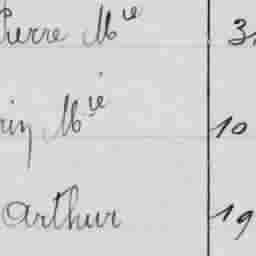 Pierre Mie 3
Mie 10
Arthur 19